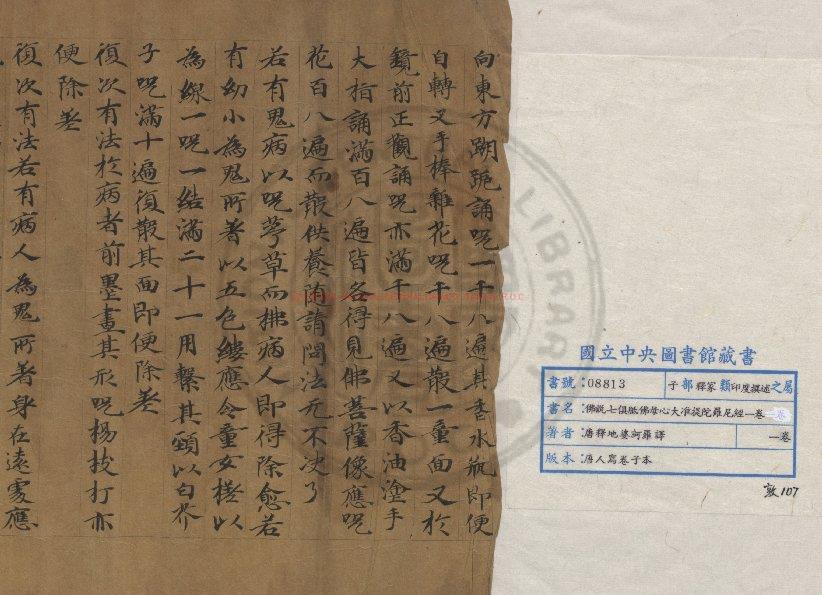 向東方蹦跪誦呪一千八遍其香水瓶即便
自轉又手捧雜花呪千八遍散一童面又於
鏡前正觀誦呪亦滿千八遍又以香油塗手
大指誦滿百八遍皆各得見佛菩薩像應呪
花百八遍而散供養随請問法无不决了
若有鬼病以呪茅草而拂病人即得除愈若
有幼小為鬼所著以五色縷應令童女搓以
為線一呪一結滿二十一用繫其頸以白芥
子呪滿十遍復散其面即便除差
復次有法於病者前墨畫其形呪楊枝打亦
便除差
復次有法若有病人為鬼所著身在遠處應
國立中央圖書館藏書
書號：08813 子部釋家類印度撰述之屬
書名：佛説七俱胝佛母心大准提陀羅尼經一卷
著者：唐釋地婆訶羅譯 一卷
版本：唐人寫卷子本
敦107
LIBRARY